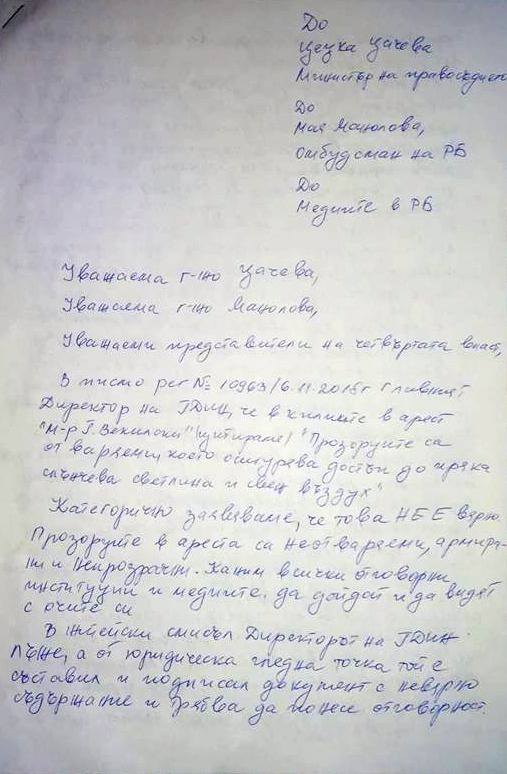 До
Цецка Цачева
Министър на правосъдието
До
Мая Манолова,
Омбудсман на РБ
До
Медиите в РБ
Уважаема г-жо Цачева,
Уважаема г-жо Манолова,
Уважаеми представители на четвъртата власт,
В писмо рег № 10963/6.11.2018г Главният
Директор на ГДИН, че в килиите в арест
"М-р Г. Векилски" (цитираме) "Прозорците са
отваряеми, което осигурява достъп до пряка
слънчева светлина и свеж въздух"
Категорично заявяваме, че това НЕ Е вярно.
Прозорците в ареста са неотваряеми, армира-
ни и непрозрачни. Каним всички отговорни
институции и медиите, да дойдат и да видят
с очите си
В житейски смисъл Директорът на ГДИН
лъже, а от юридическа гледна точка той е
съставил и подписал документ с невярно
съдържание и трябва да понесе отговорност.